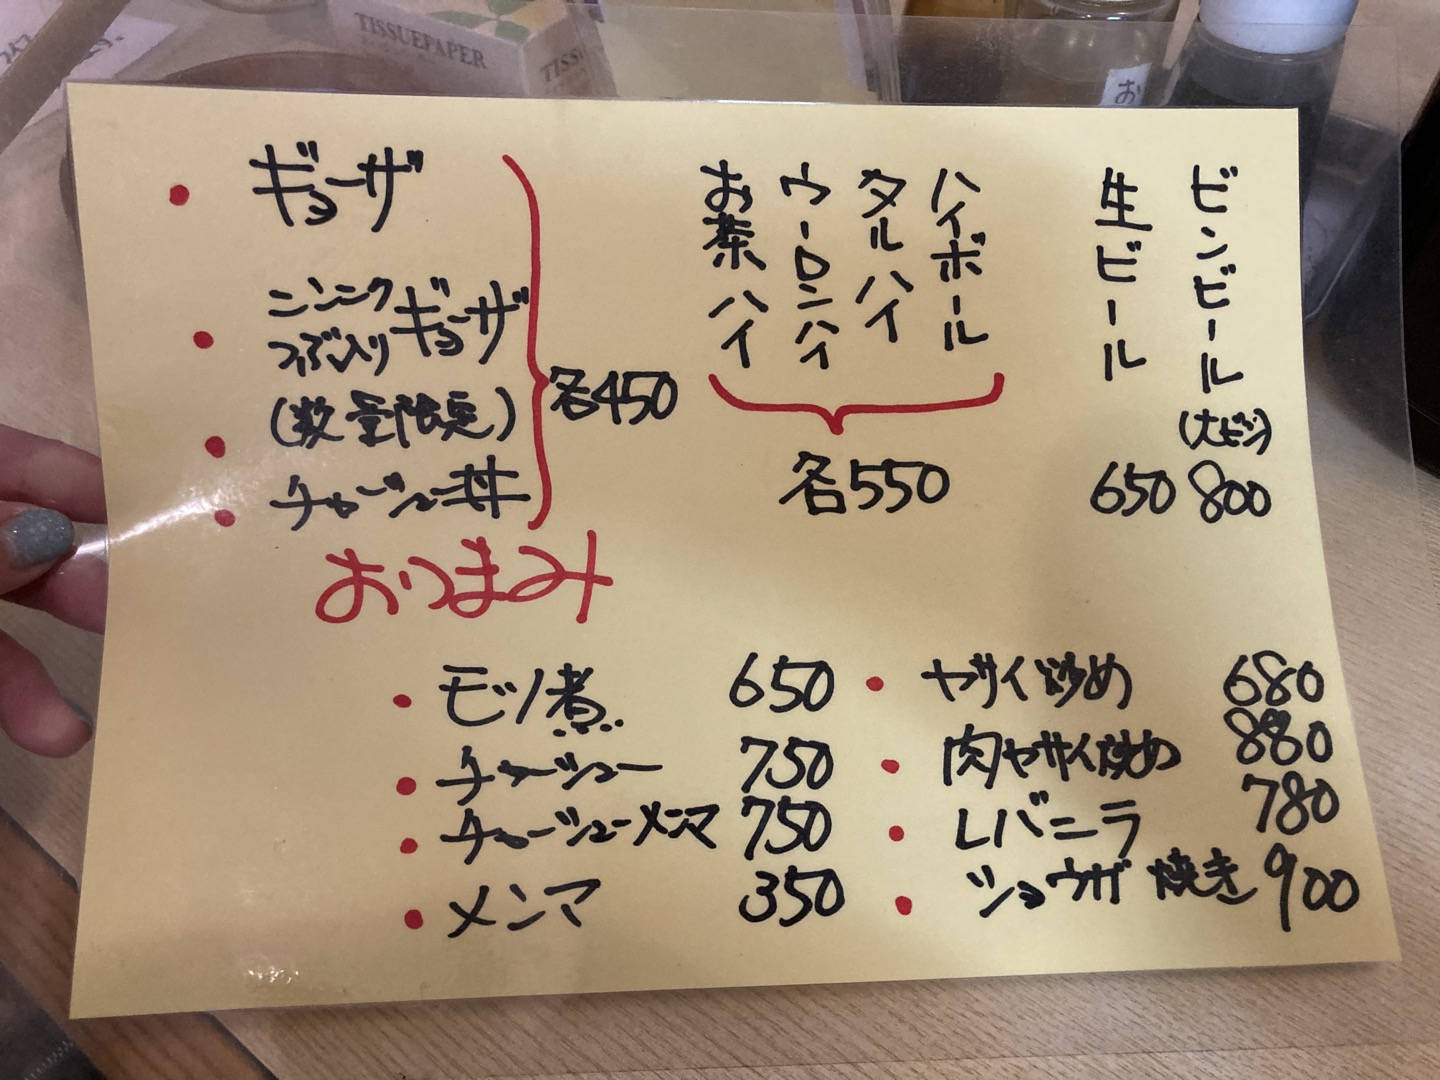 TISSUEPAPER
TISS
お
ギョーザ
ニンニク
つぶ入り ギョーザ
(数量限定)
チャーシュー丼
各450
ビンビール
(大ビン)
800
生ビール
650
ハイボール
タルハイ
ウーロンハイ
お茶ハイ
各550
おつまみ
モツ煮 650
チャーシュー 750
チャーシューメンマ 750
メンマ 350
ヤサイ炒め 680
肉ヤサイ炒め 880
レバニラ 780
ショウガ焼き 900